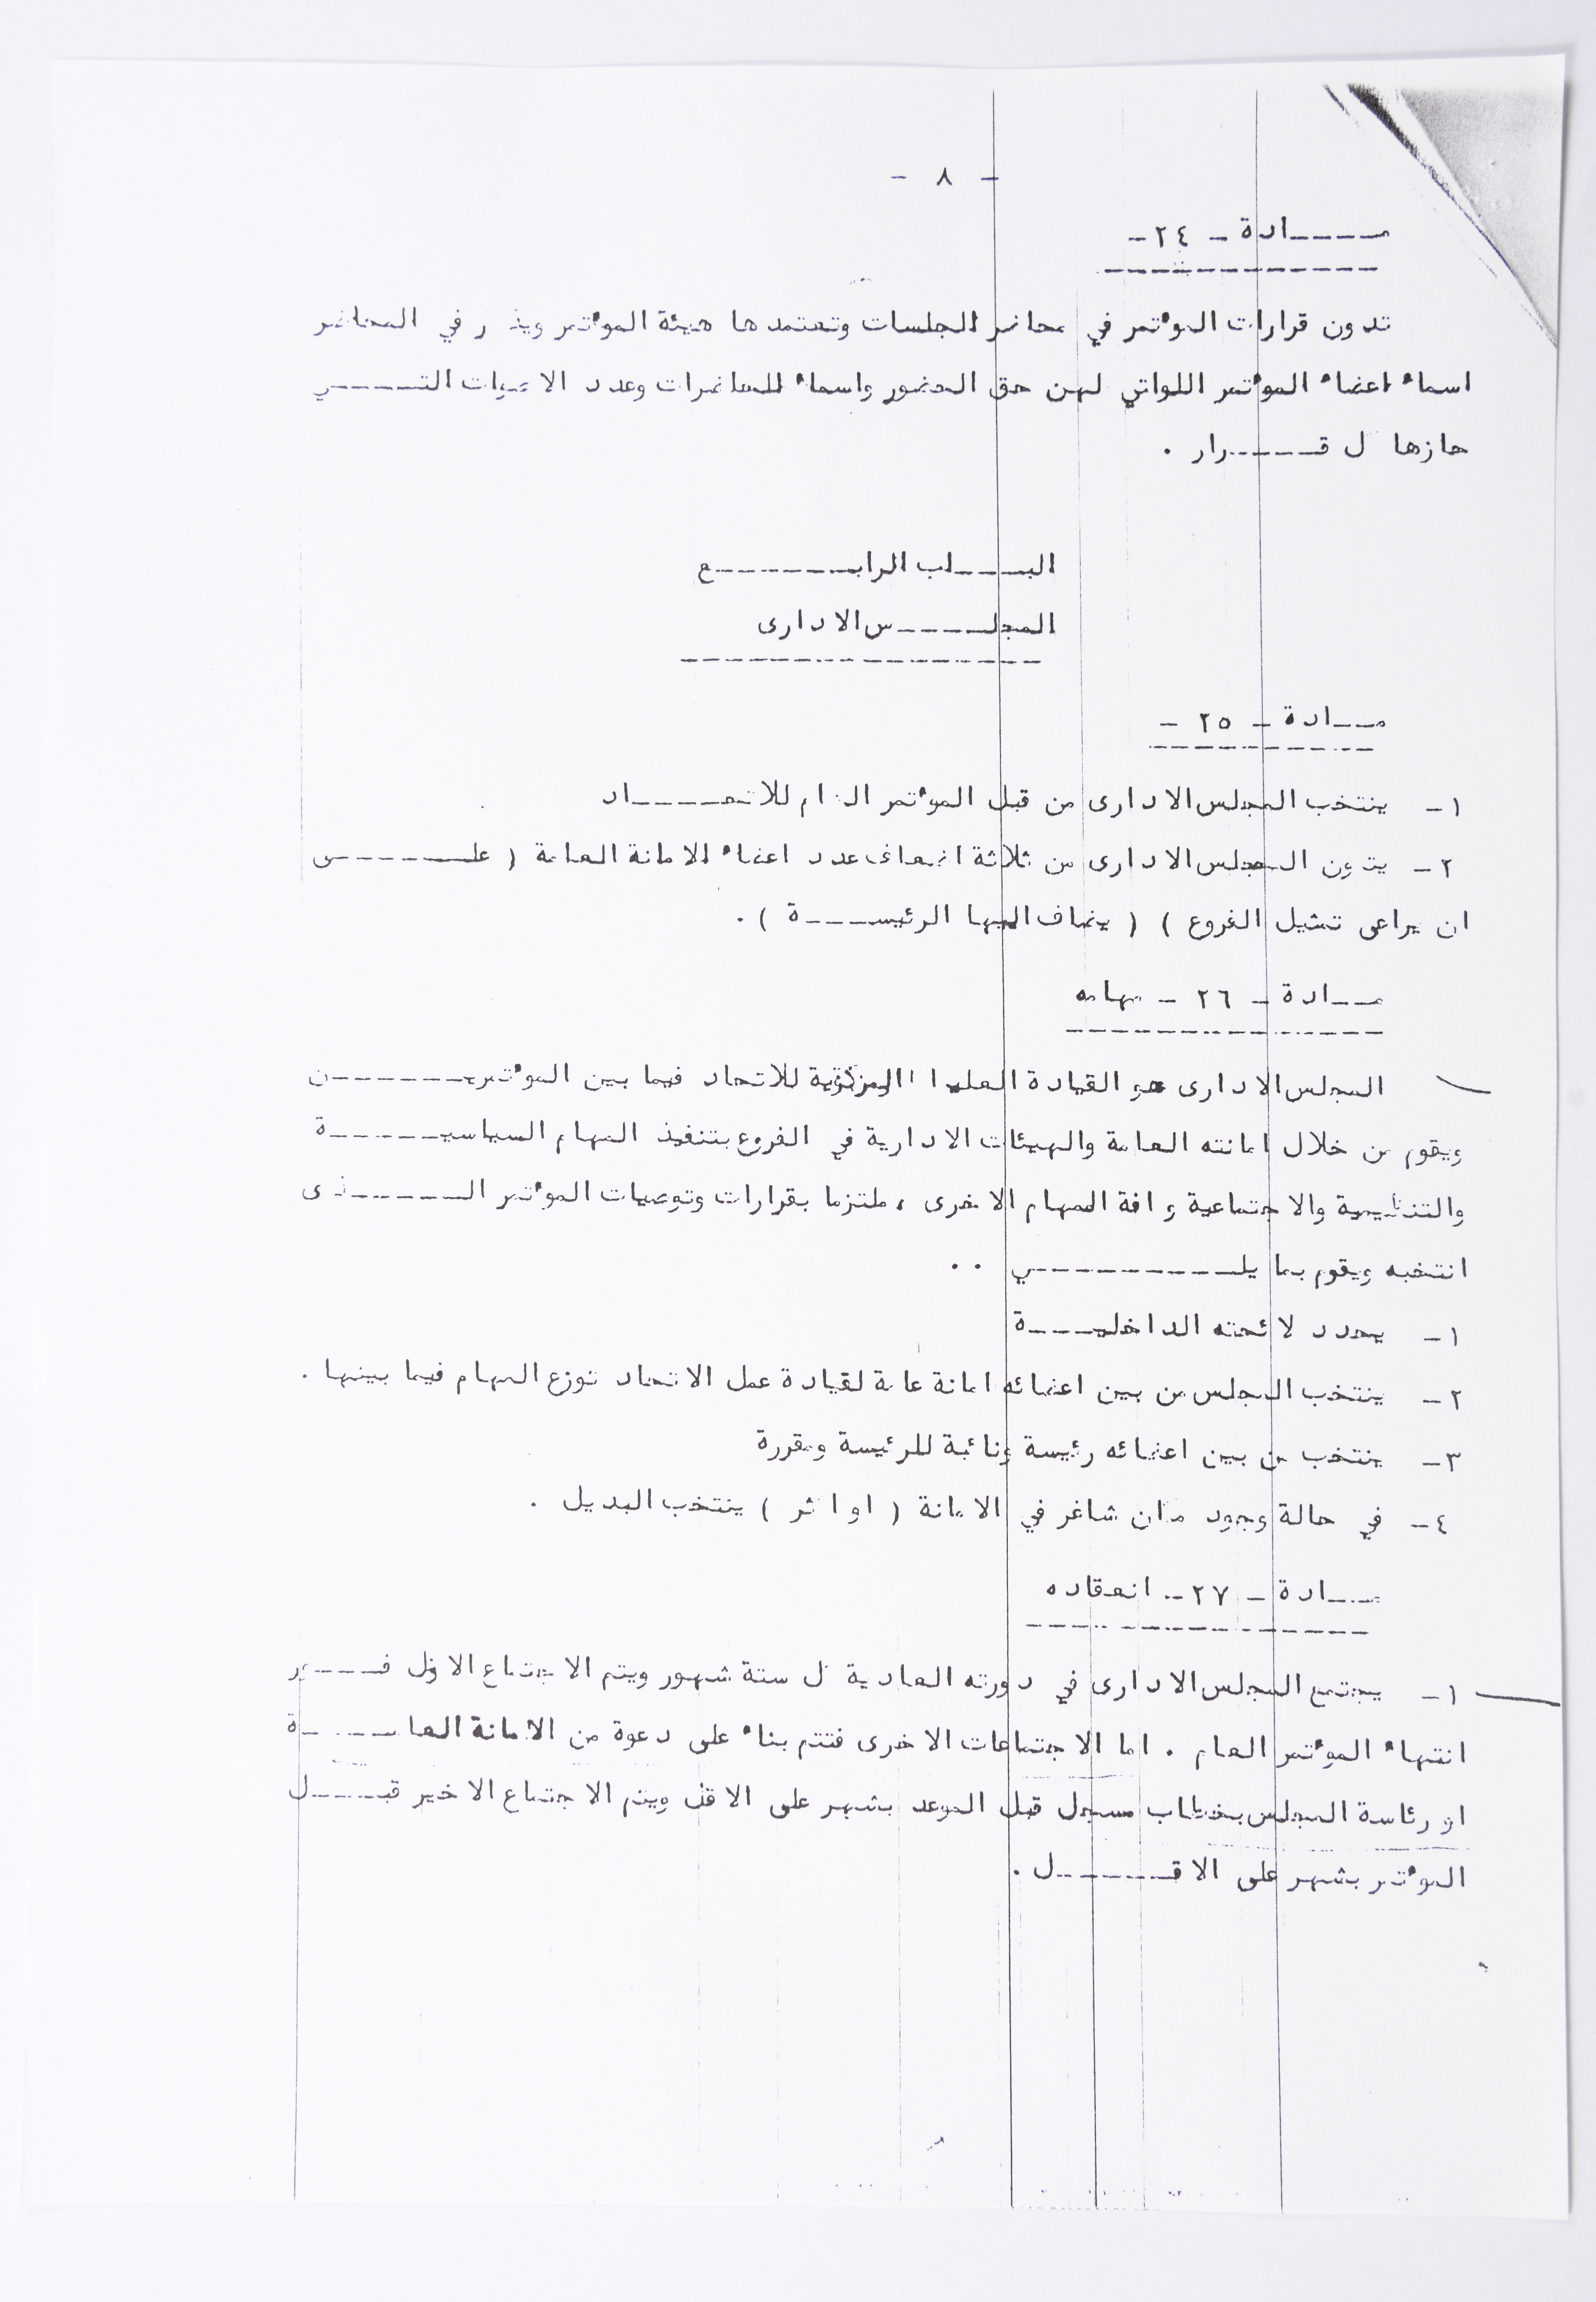 - ٨ -
مـــــادة - ٢٤ -
تدون قرارات المؤتمر في محاضر الجلسات وتعتمدها هيئة المؤتمر ويذكر في المحاضر
اسماء اعضاء المؤتمر اللواتي لهن حق الحضور واسماء الحاضرات وعدد الاصوات التـــــي
حازها كل قـــــرار .
البـــــاب الرابـــــــع
المجلـــــس الادارى
مـــادة - ٢٥ -
١- ينتخب المجلس الادارى من قبل المؤتمر العام للاتحـــــاد
٢- يتكون المجلس الادارى من ثلاثة اضعاف عدد اعضاء الامانة العامة ( علـــــى
ان يراعى تمثيل الفروع ) ( يضاف اليها الرئيســـــة ) .
مـــادة - ٢٦ - مهامه
المجلس الادارى هو القيادة العليا المركزية للاتحاد فيما بين المؤتمريـــــــن
ويقوم من خلال امانته العامة والهيئات الادارية في الفروع بتنفيذ المهام السياسيـــــــة
والتنظيمية والاجتماعية وكافة المهام الاخرى ، ملتزما بقرارات وتوصيات المؤتمر الــــــذى
انتخبه ويقوم بما يلـــــــــــي ..
١- يحدد لائحته الداخليـــــة
٢- ينتخب المجلس من بين اعضائه امانة عامة لقيادة عمل الاتحاد توزع المهام فيما بينها .
٣- ينتخب من بين اعضائه رئيسة ونائبة للرئيسة ومقررة
٤- في حالة وجود مكان شاغر في الامانة ( او اكثر ) ينتخب البديل .
مـــادة - ٢٧ - انعقاده
١- يجتمع المجلس الادارى في دورته العادية كل ستة شهور ويتم الاجتماع الاول فـــــور
انتهاء المؤتمر العام . اما الاجتماعات الاخرى فتتم بناء على دعوة من الامانة العامـــــة
او رئاسة المجلس بخطاب مسجل قبل الموعد بشهر على الاقل ويتم الاجتماع الاخير قبـــــل
المؤتمر بشهر على الاقــــــل .